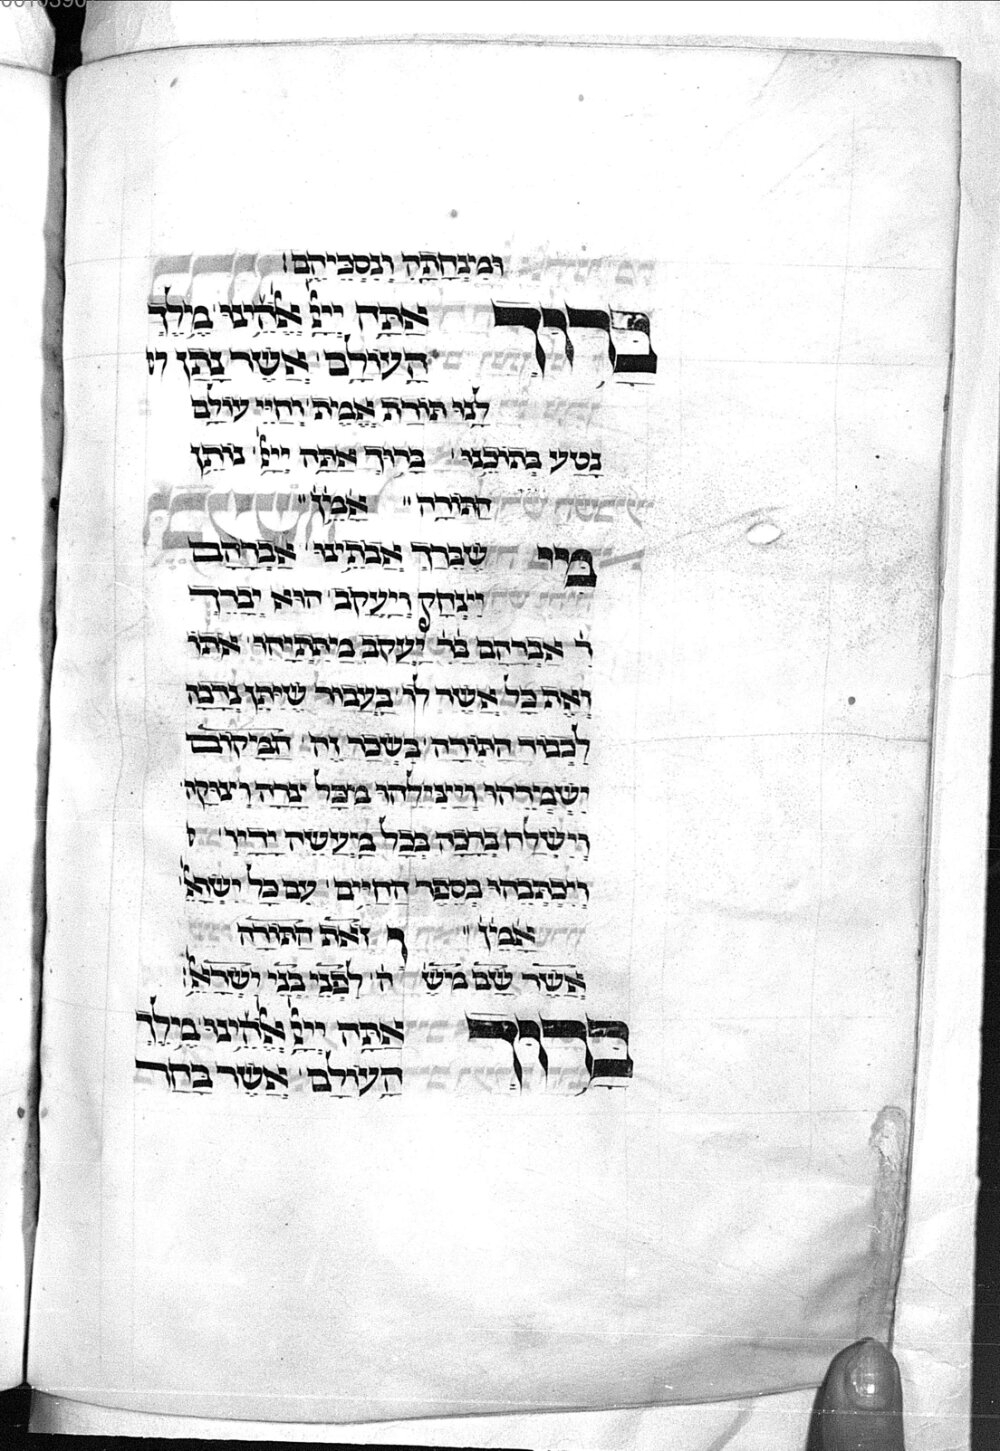 וּמִנְחָתָם וְנִסְכֵּיהֶם:
בָּרוּךְ אַתָּה יְיָ אֱלֹהֵינוּ מֶלֶךְ
הָעוֹלָם אֲשֶׁר נָתַן
לָנוּ תּוֹרַת אֱמֶת וְחַיֵּי עוֹלָם
נָטַע בְּתוֹכֵנוּ בָּרוּךְ אַתָּה יְיָ נוֹתֵן
הַתּוֹרָה אָמֵן
מִי שֶׁבֵּרַךְ אֲבֹתֵינוּ אַבְרָהָם
יִצְחָק וְיַעֲקֹב הוּא יְבָרֵךְ
ר אברהם בר יעקב מתתיהו אתו
וְאֶת כָּל אֲשֶׁר לוֹ בַּעֲבוּר שֶׁיִּתֵּן נְדָבָה
לִכְבוֹד הַתּוֹרָה בִּשְׂכַר זֶה הַמָּקוֹם
יִשְׁמְרֵהוּ וְיַצִּילֵהוּ מִכָּל צָרָה וְצוּקָה
וְיִשְׁלַח בְּרָכָה בְּכָל מַעֲשֵׂה יָדָיו
וְיִכְתְּבֵהוּ בְּסֵפֶר הַחַיִּים עִם כָּל
אָמֵן וְ זֹאת הַתּוֹרָה
אֲשֶׁר שָׂם מֹשֶׁה לִפְנֵי בְּנֵי יִשְׂרָאֵל:
בָּרוּךְ אַתָּה יְיָ אֱלֹהֵינוּ מֶלֶךְ
הָעוֹלָם אֲשֶׁר בָּחַר